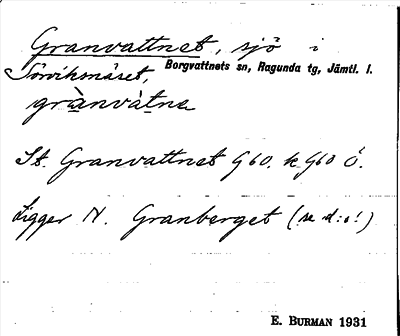 Granvattnet, sjö i
Sörviksnäset, Borgvattnets sn, Ragunda tg, Jämtl. l.
grànvàtnɐ
St. Granvattnet G60. k G60 Ö.
Ligger N. Granberget (se d:o!)
E. BURMAN 1931